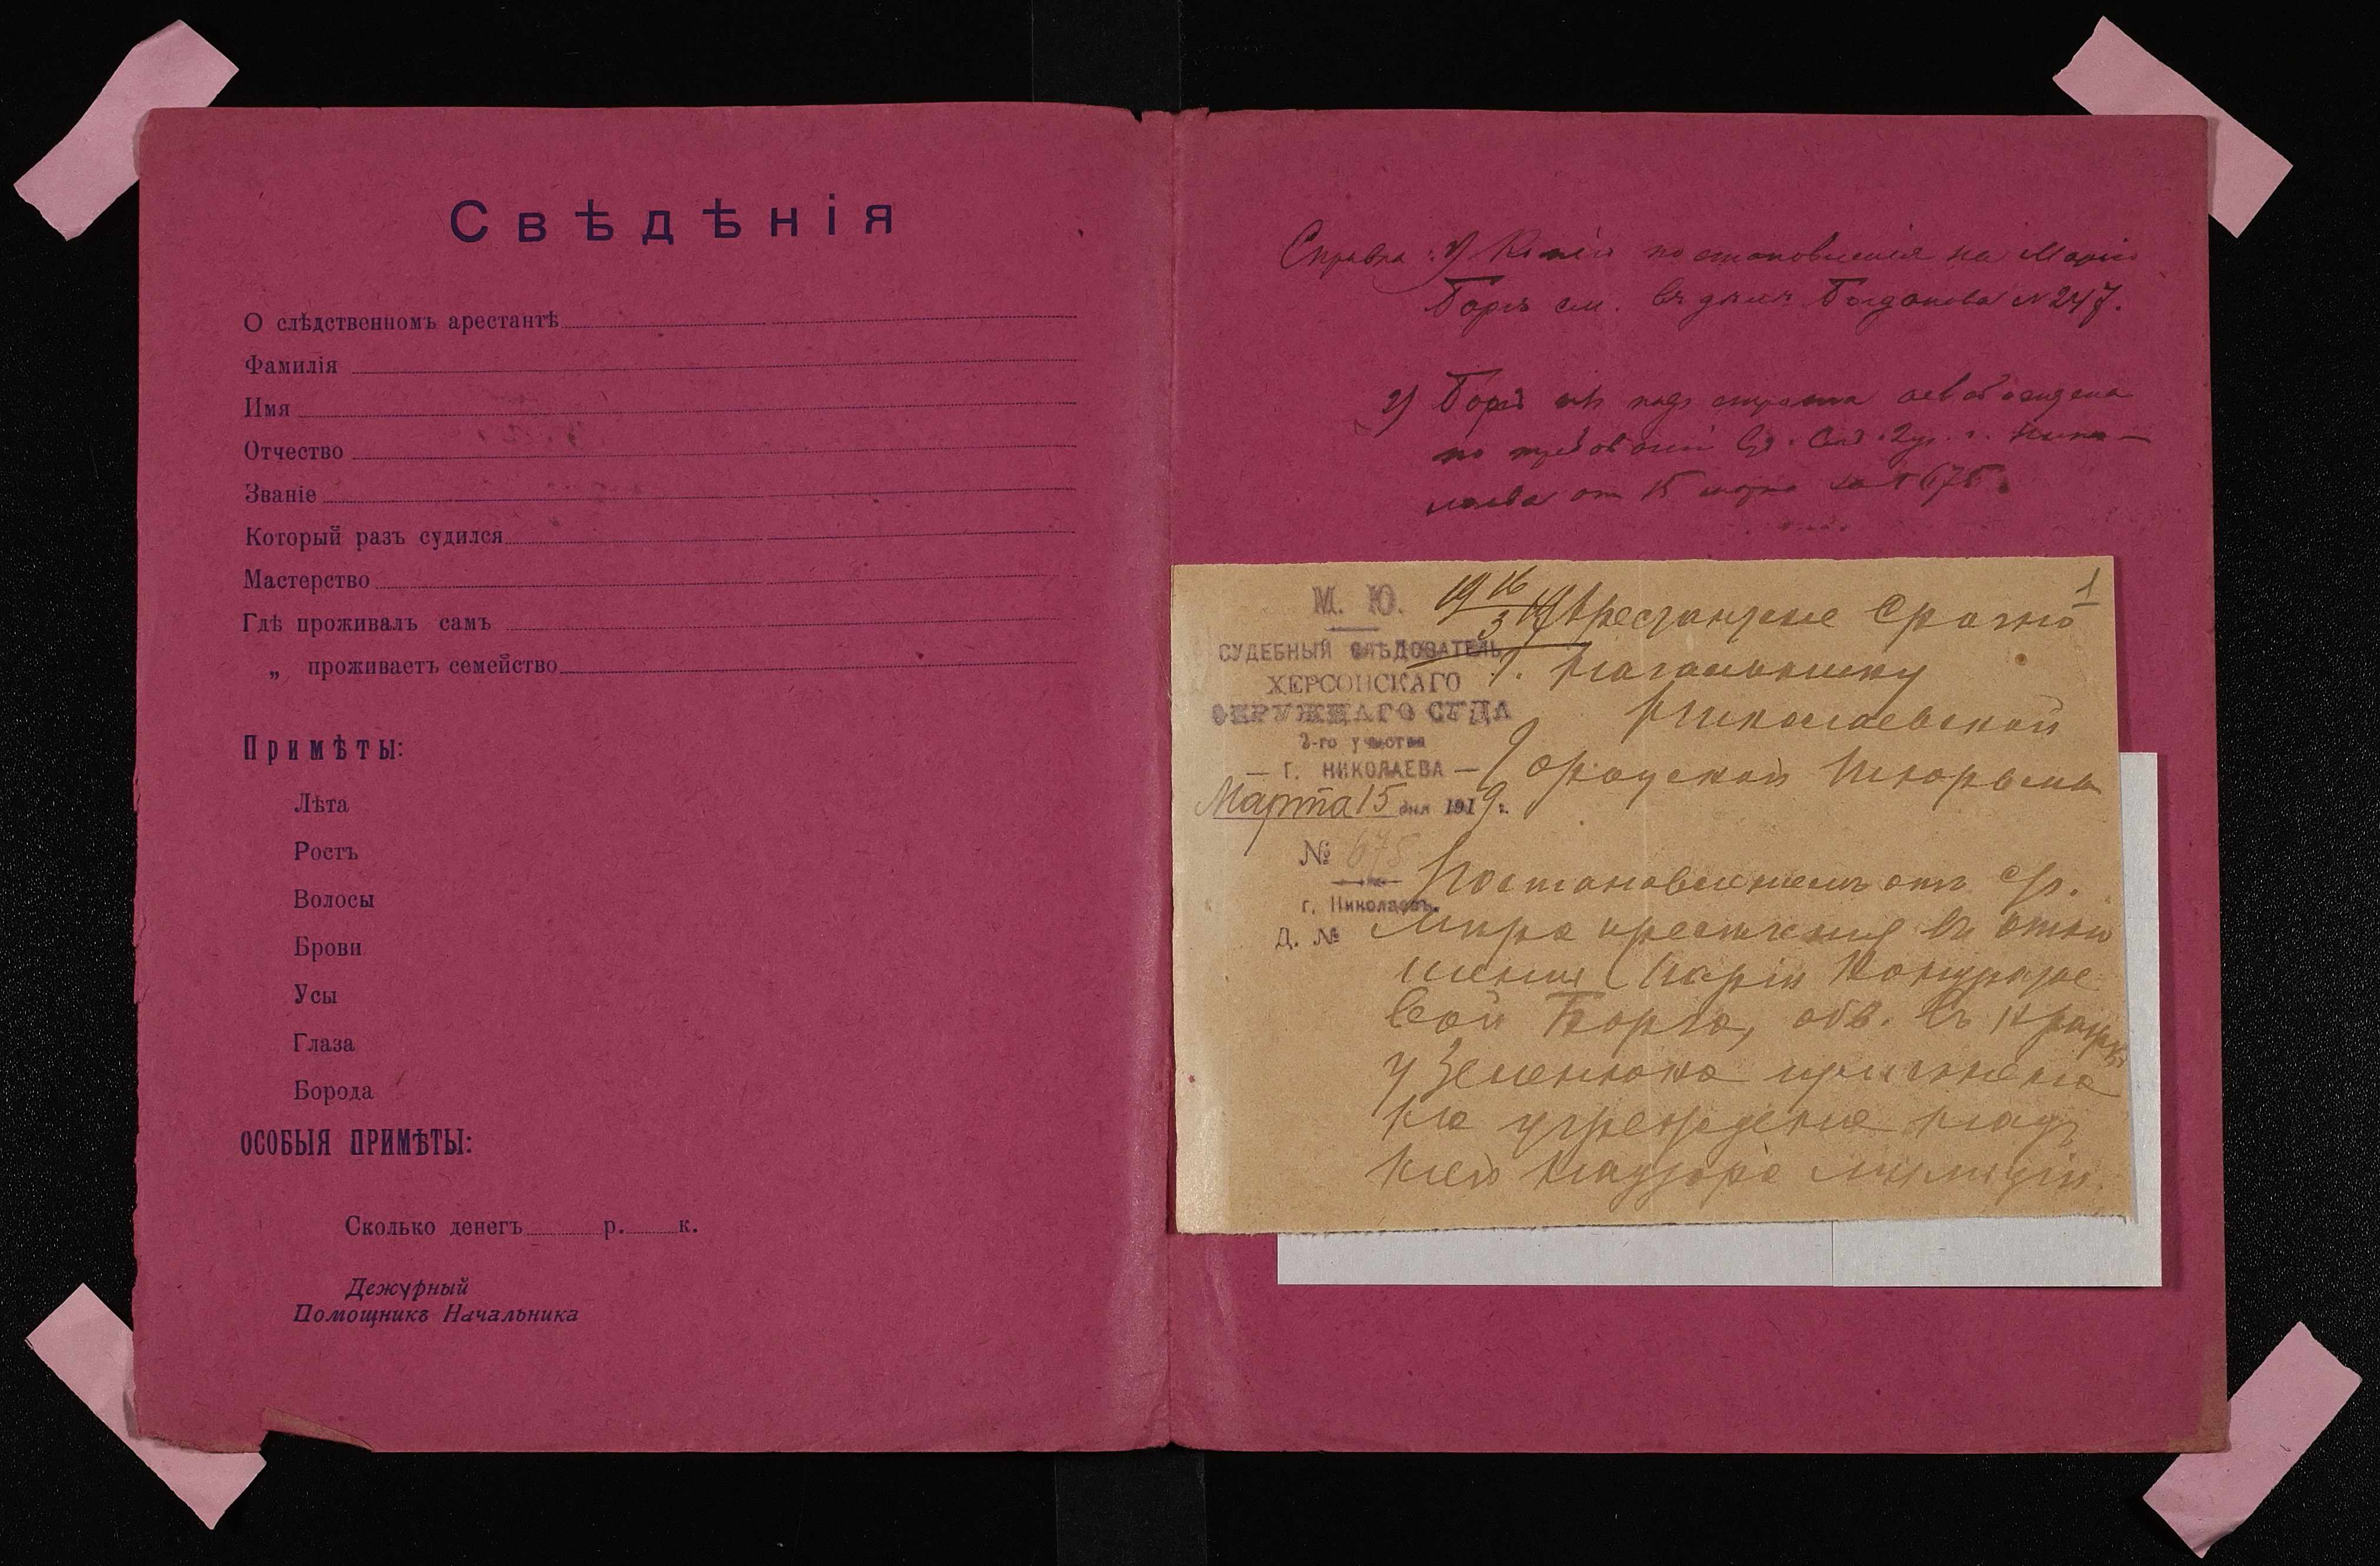 Свѣдѣнія
О слѣдственномъ арестантѣ
Фамилія
Имя
Отчество
Званіе
Который разъ судился
Мастерство
Гдѣ проживалъ самъ
„ проживаетъ семейство
Примѣты:
Лѣта
Ростъ
Волосы
Брови
Усы
Глаза
Борода
ОСОБЫЯ ПРИМѢТЫ:
Сколько денегъ р. к.
Дежурный
Помощникъ Начальника
Справка: 1) Копію постановленія на Марію
Боргъ см. въ дѣлѣ Богданова №247.
2) Боргъ из подъ стражи освобождена
по требованію Суд. Слѣд. 2 уч. г. Нико-
лаева от 15 марта за № 675.
1
19 16/3 19
Арестантское Срочно
М. Ю.
СУДЕБНЫЙ СЛѢДОВАТЕЛЬ
ХЕРСОНСКАГО
ОКРУЖНАГО СУДА
2-го участка
— Г. НИКОЛАЕВА —
Марта 15 дня 1919 г.
№ 675
г. Николаевъ.
Д. №
Г. Начальнику
Николаевской
Городской Тюрьмы
Постановленіемъ отъ с/ч.
мѣра пресѣченія въ отно
шеніи Маріи
вой Боргъ, обв. въ кражѣ
у измѣнена
на учрежденіе надъ
нею надзора милиціи.